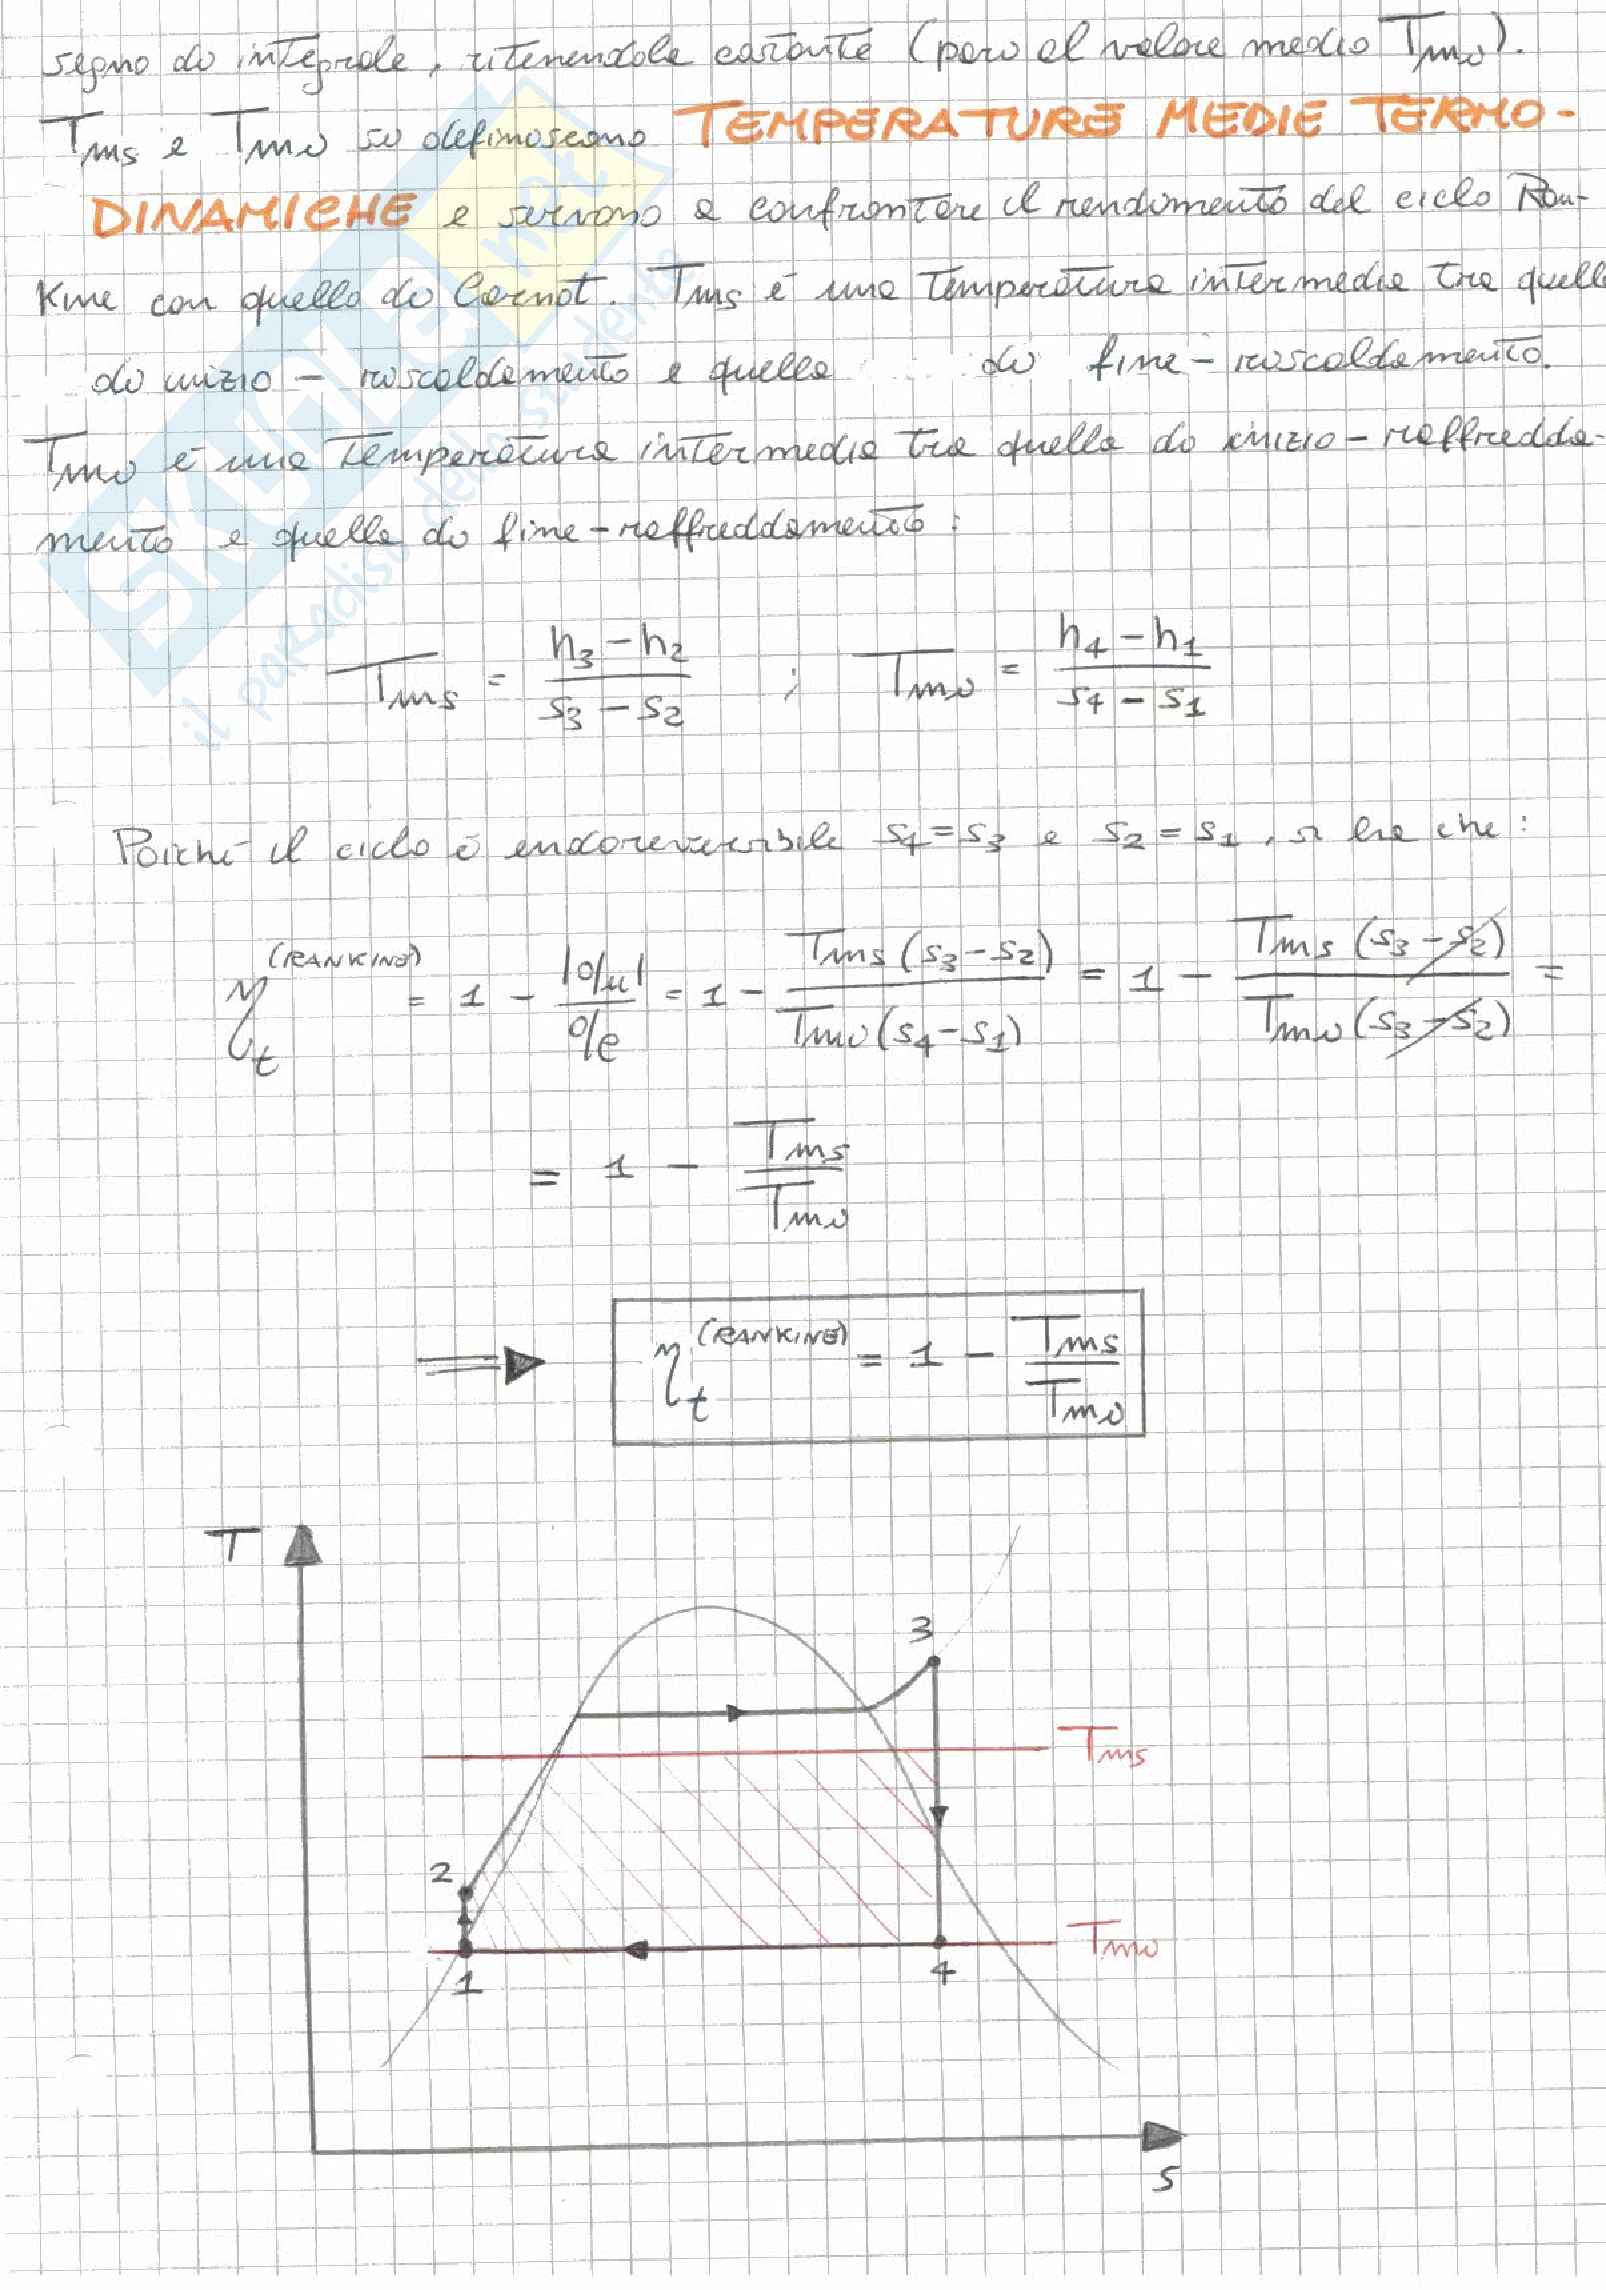 segno di integrale, ritenendola costante (pari al valore medio Tmi).
Tms e Tmi si definiscono TEMPERATURE MEDIE TERMO-
DINAMICHE e servono a confrontare il rendimento del ciclo Ran-
Kine con quello di Carnot. Tms è una temperatura intermedia tra quella
di inizio - riscaldamento e quella di fine - riscaldamento.
Tmi è una temperatura intermedia tra quella di inizio - raffredda-
mento e quella di fine - raffreddamento:
Tms = (h3 - h2)/(s3 - s2) ; Tmi = (h4 - h1)/(s4 - s1)
Poiché il ciclo è endoreversibile s4 = s3 e s2 = s1, si ha che:
ηt (RANKINE) = 1 - |qu|/qe = 1 - Tms (s3 - s2)/Tmi (s4 - s1) = 1 - Tms (s3 - s2)/Tmi (s3 - s2) =
= 1 - Tms/Tmi
⇒ ηt (RANKINE) = 1 - Tms/Tmi
T
3
Tms
2
Tmi
1
4
s
SKUOLA.net
il paradiso dello studente